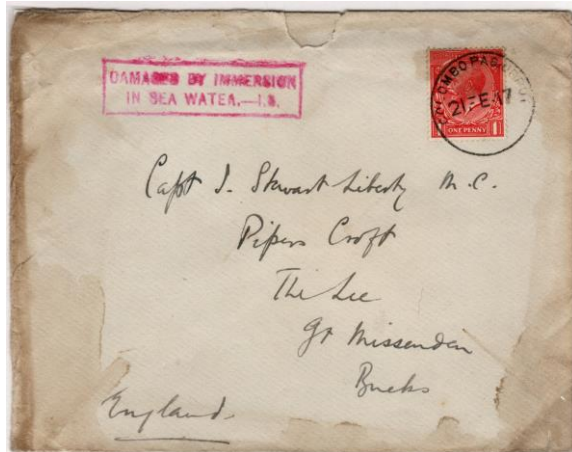 DAMAGED BY IMMERSION
IN SEA WATER.—I.S.
21 FE 17
ONE PENNY 1
Capt I. Stewart Liberty M.C.
Pipers Croft
The Lee
Gt Missenden
Bucks
England